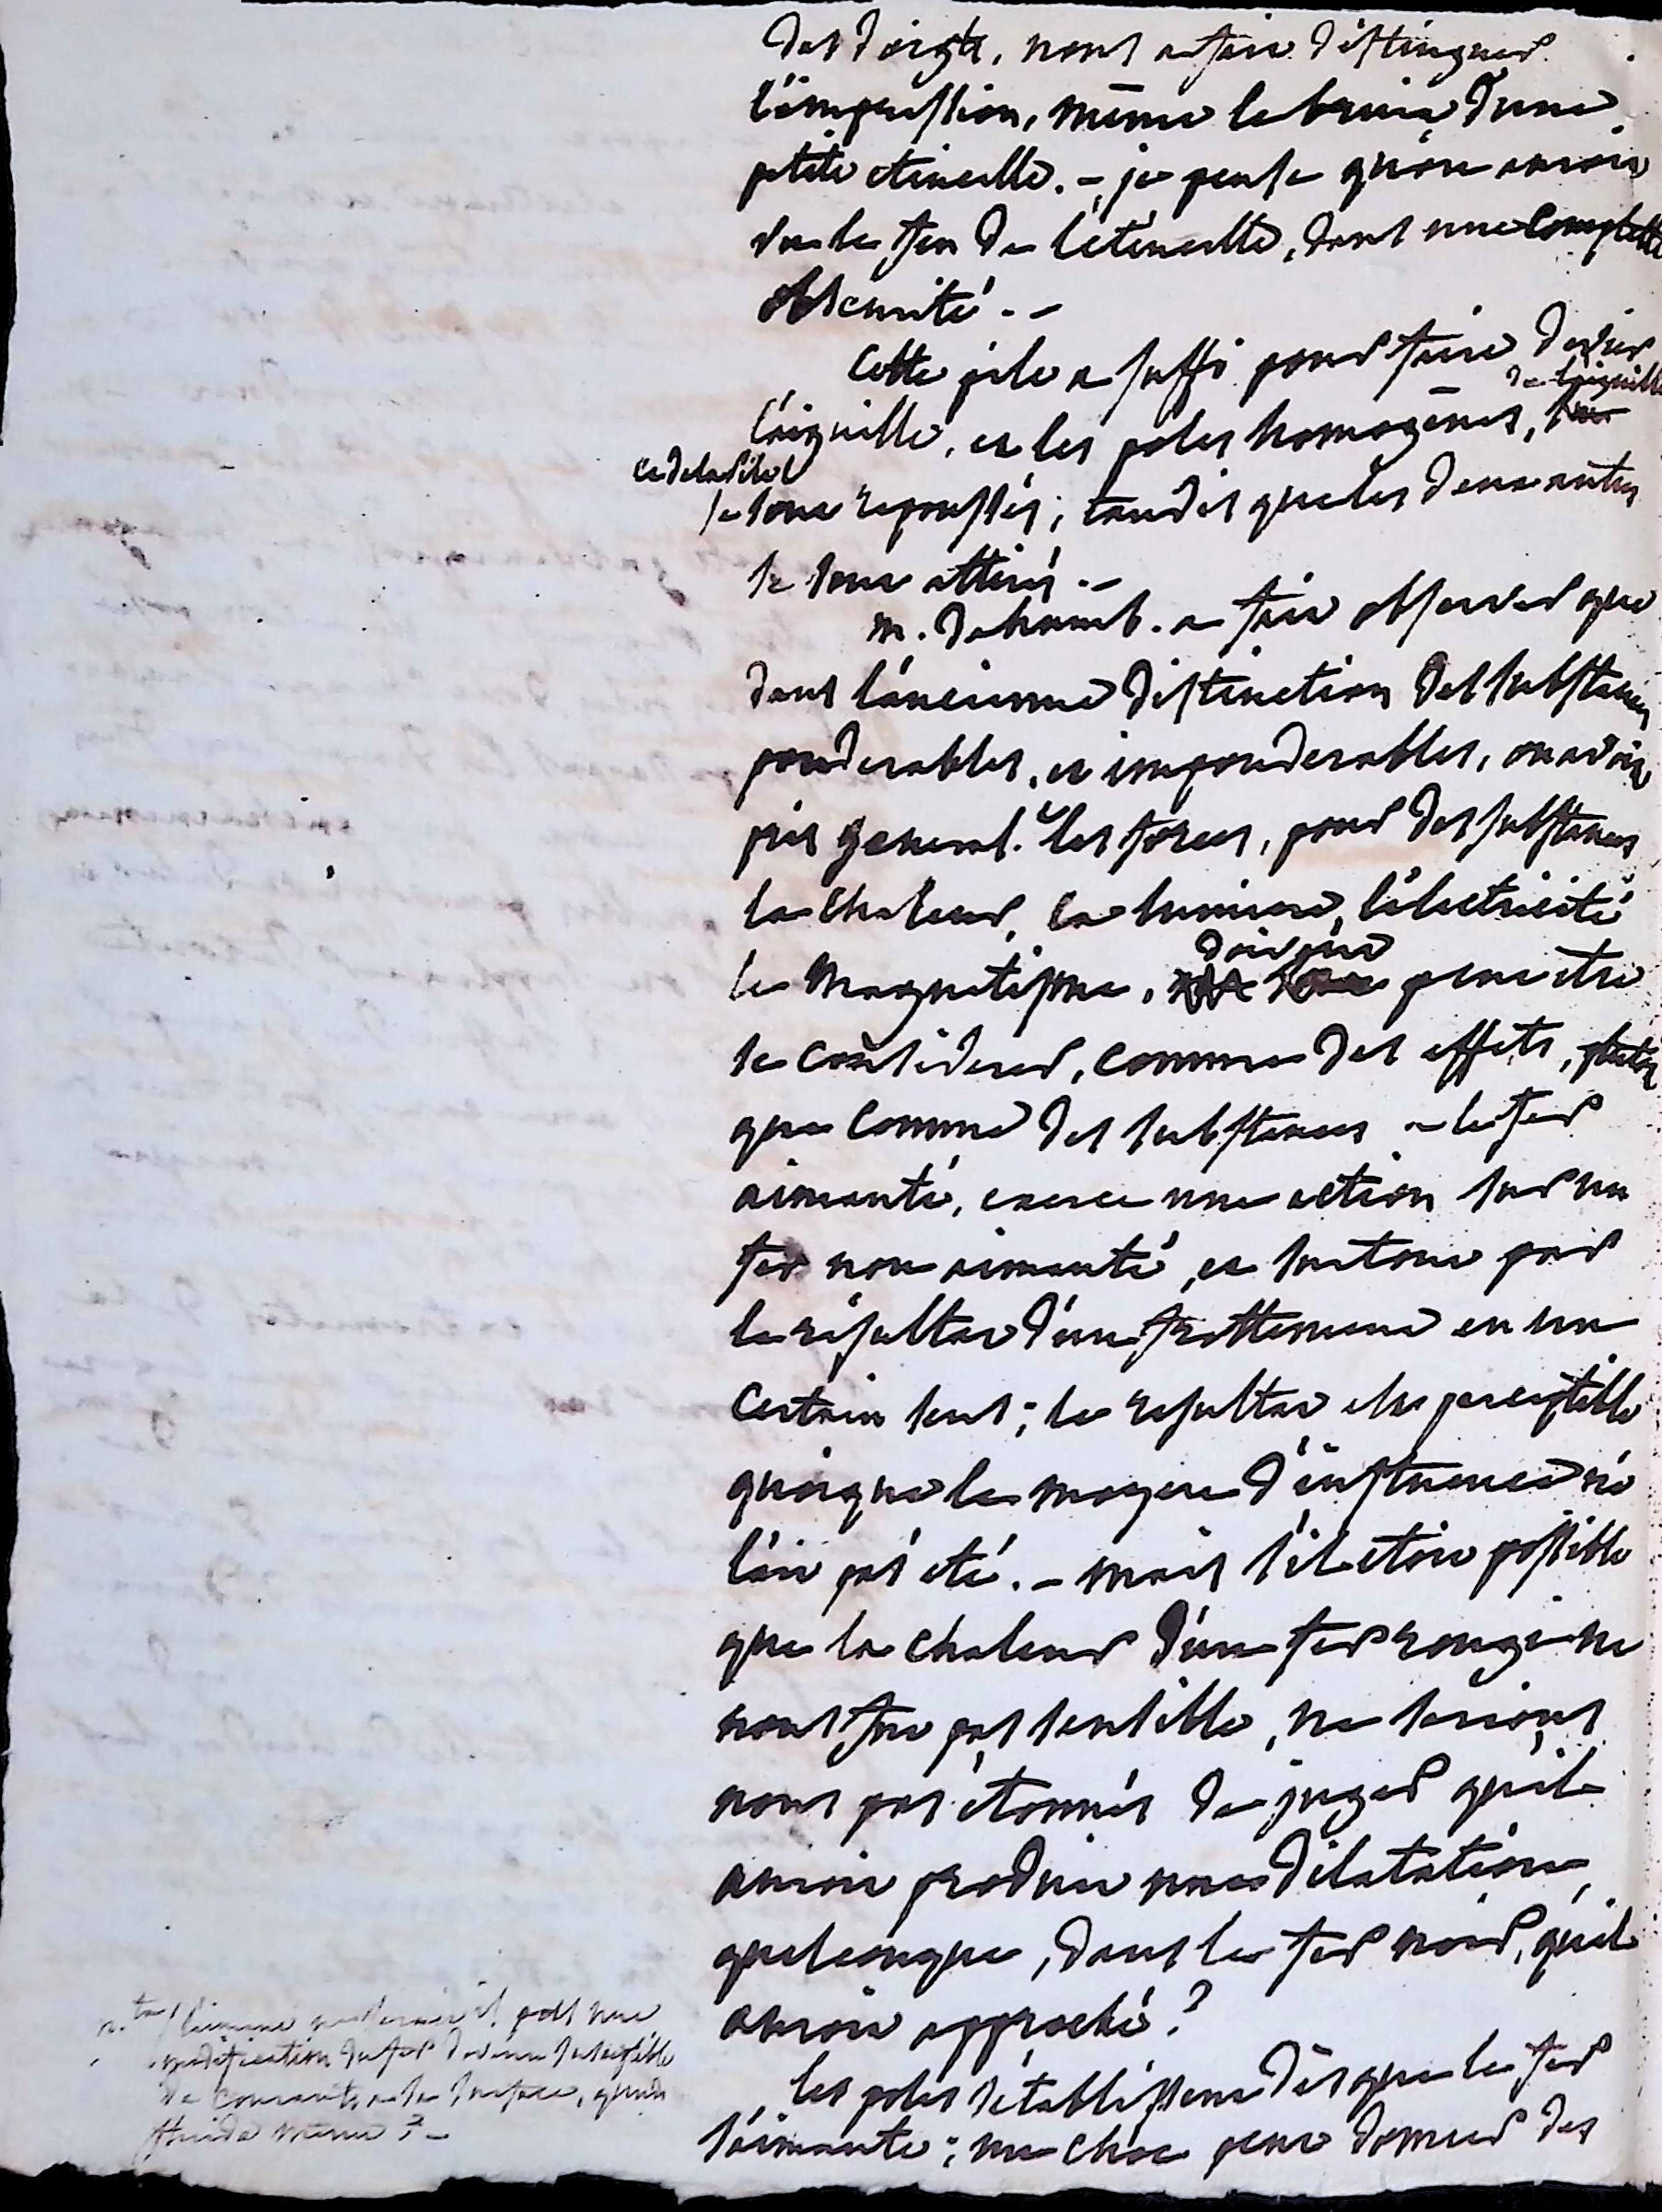 des doigts, nous a fait distinguer
l'impression, même le bruit d'une
petite étincelle. - je pense qu'on auroit
vu le feu de l'étincelle, dans une complette
obscurité. -
Cette pile a suffi pour faire dévier
l'aiguille, et les poles homogènes, de l'aiguille
et de la pile
se sont repoussés; tandis que les deux autres
se sont attirés. -
m. de humb. a fait observer que
dans l'ancienne distinction des substances
pondérables, et impondérables, on avoit
pris general.t les forces, pour des substances
la chaleur, la lumiere, l'électricité
le magnétisme, doivent peut etre
se considérer, comme des effets, plutot
que comme des substances - le fer
aimanté, exerce une action sur un
fer non aimanté, et surtout par
le résultat d'un frottement en un
certain sens; le resultat est perceptible
quoique le moyen d'influence ne
l'ait pas été. - mais s'il etoit possible
que la chaleur d'un fer rougi ne
nous fut pas sensible, ne serions
nous pas étonnés de juger qu'il
auroit produit une dilatation
quelconque, dans le fer noir, qu'il
auroit approché?
les poles s'établissent dès que le fer
s'aimante; un choc peut donner des
n.ta l'aimant ne seroit il pas une
modification du fer devenu susceptible
de courants a la surface, qu'un
fluide même? -